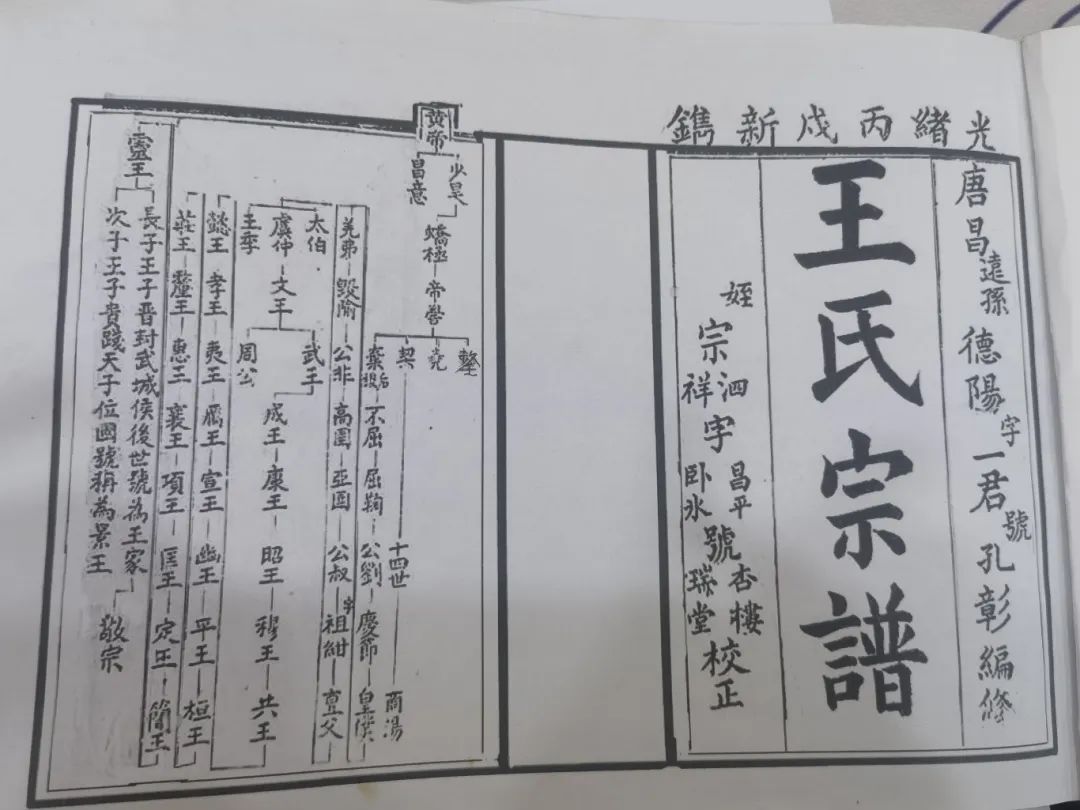 光緒丙戌新鐫
唐昌遠孫德陽字一君號孔彰編修
王氏宗譜
姪宗泗祥字昌平卧氷號杏樓瑞堂校正
黃帝
少昊
昌意
蟜極 帝嚳
摯
堯
契 十四世 商湯
棄后稷 不屈 屈鞠 公劉 慶節 皇僕
羌弗 毀隃 公非 高圉 亞圉 公叔 祖紺 亶父
太伯
虞仲
王季
文王
武王
周公
成王 康王 昭王 穆王 共王
懿王 孝王 夷王 厲王 宣王 幽王 平王 桓王
莊王 釐王 惠王 襄王 項王 匡王 定王 簡王
靈王
長子王子晋封武城侯後世號為王家
敬宗
次子王子貴踐天子位國號稱為景王